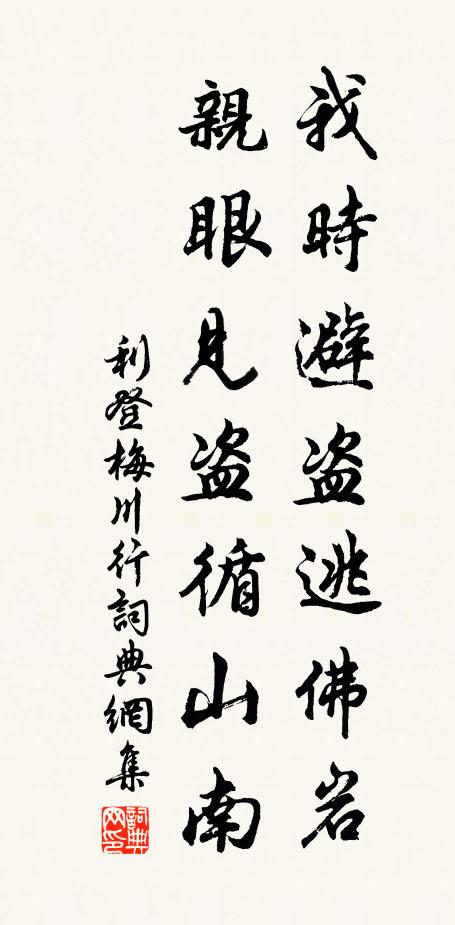 我時避盗逃佛岩
親眼見盗循山南
利登梅川行詞典網集
詞典网印